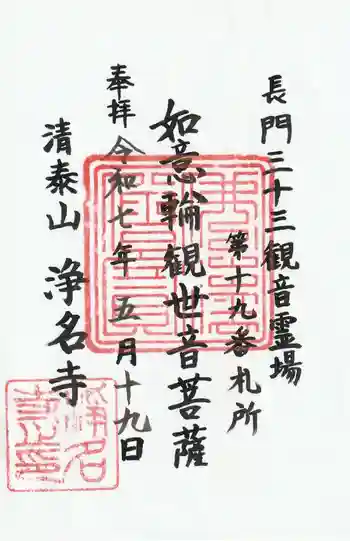 長門三十三観音霊場
第十九番札所
如意輪觀世音菩薩
奉拝 令和七年五月十九日
清泰山 浄名寺